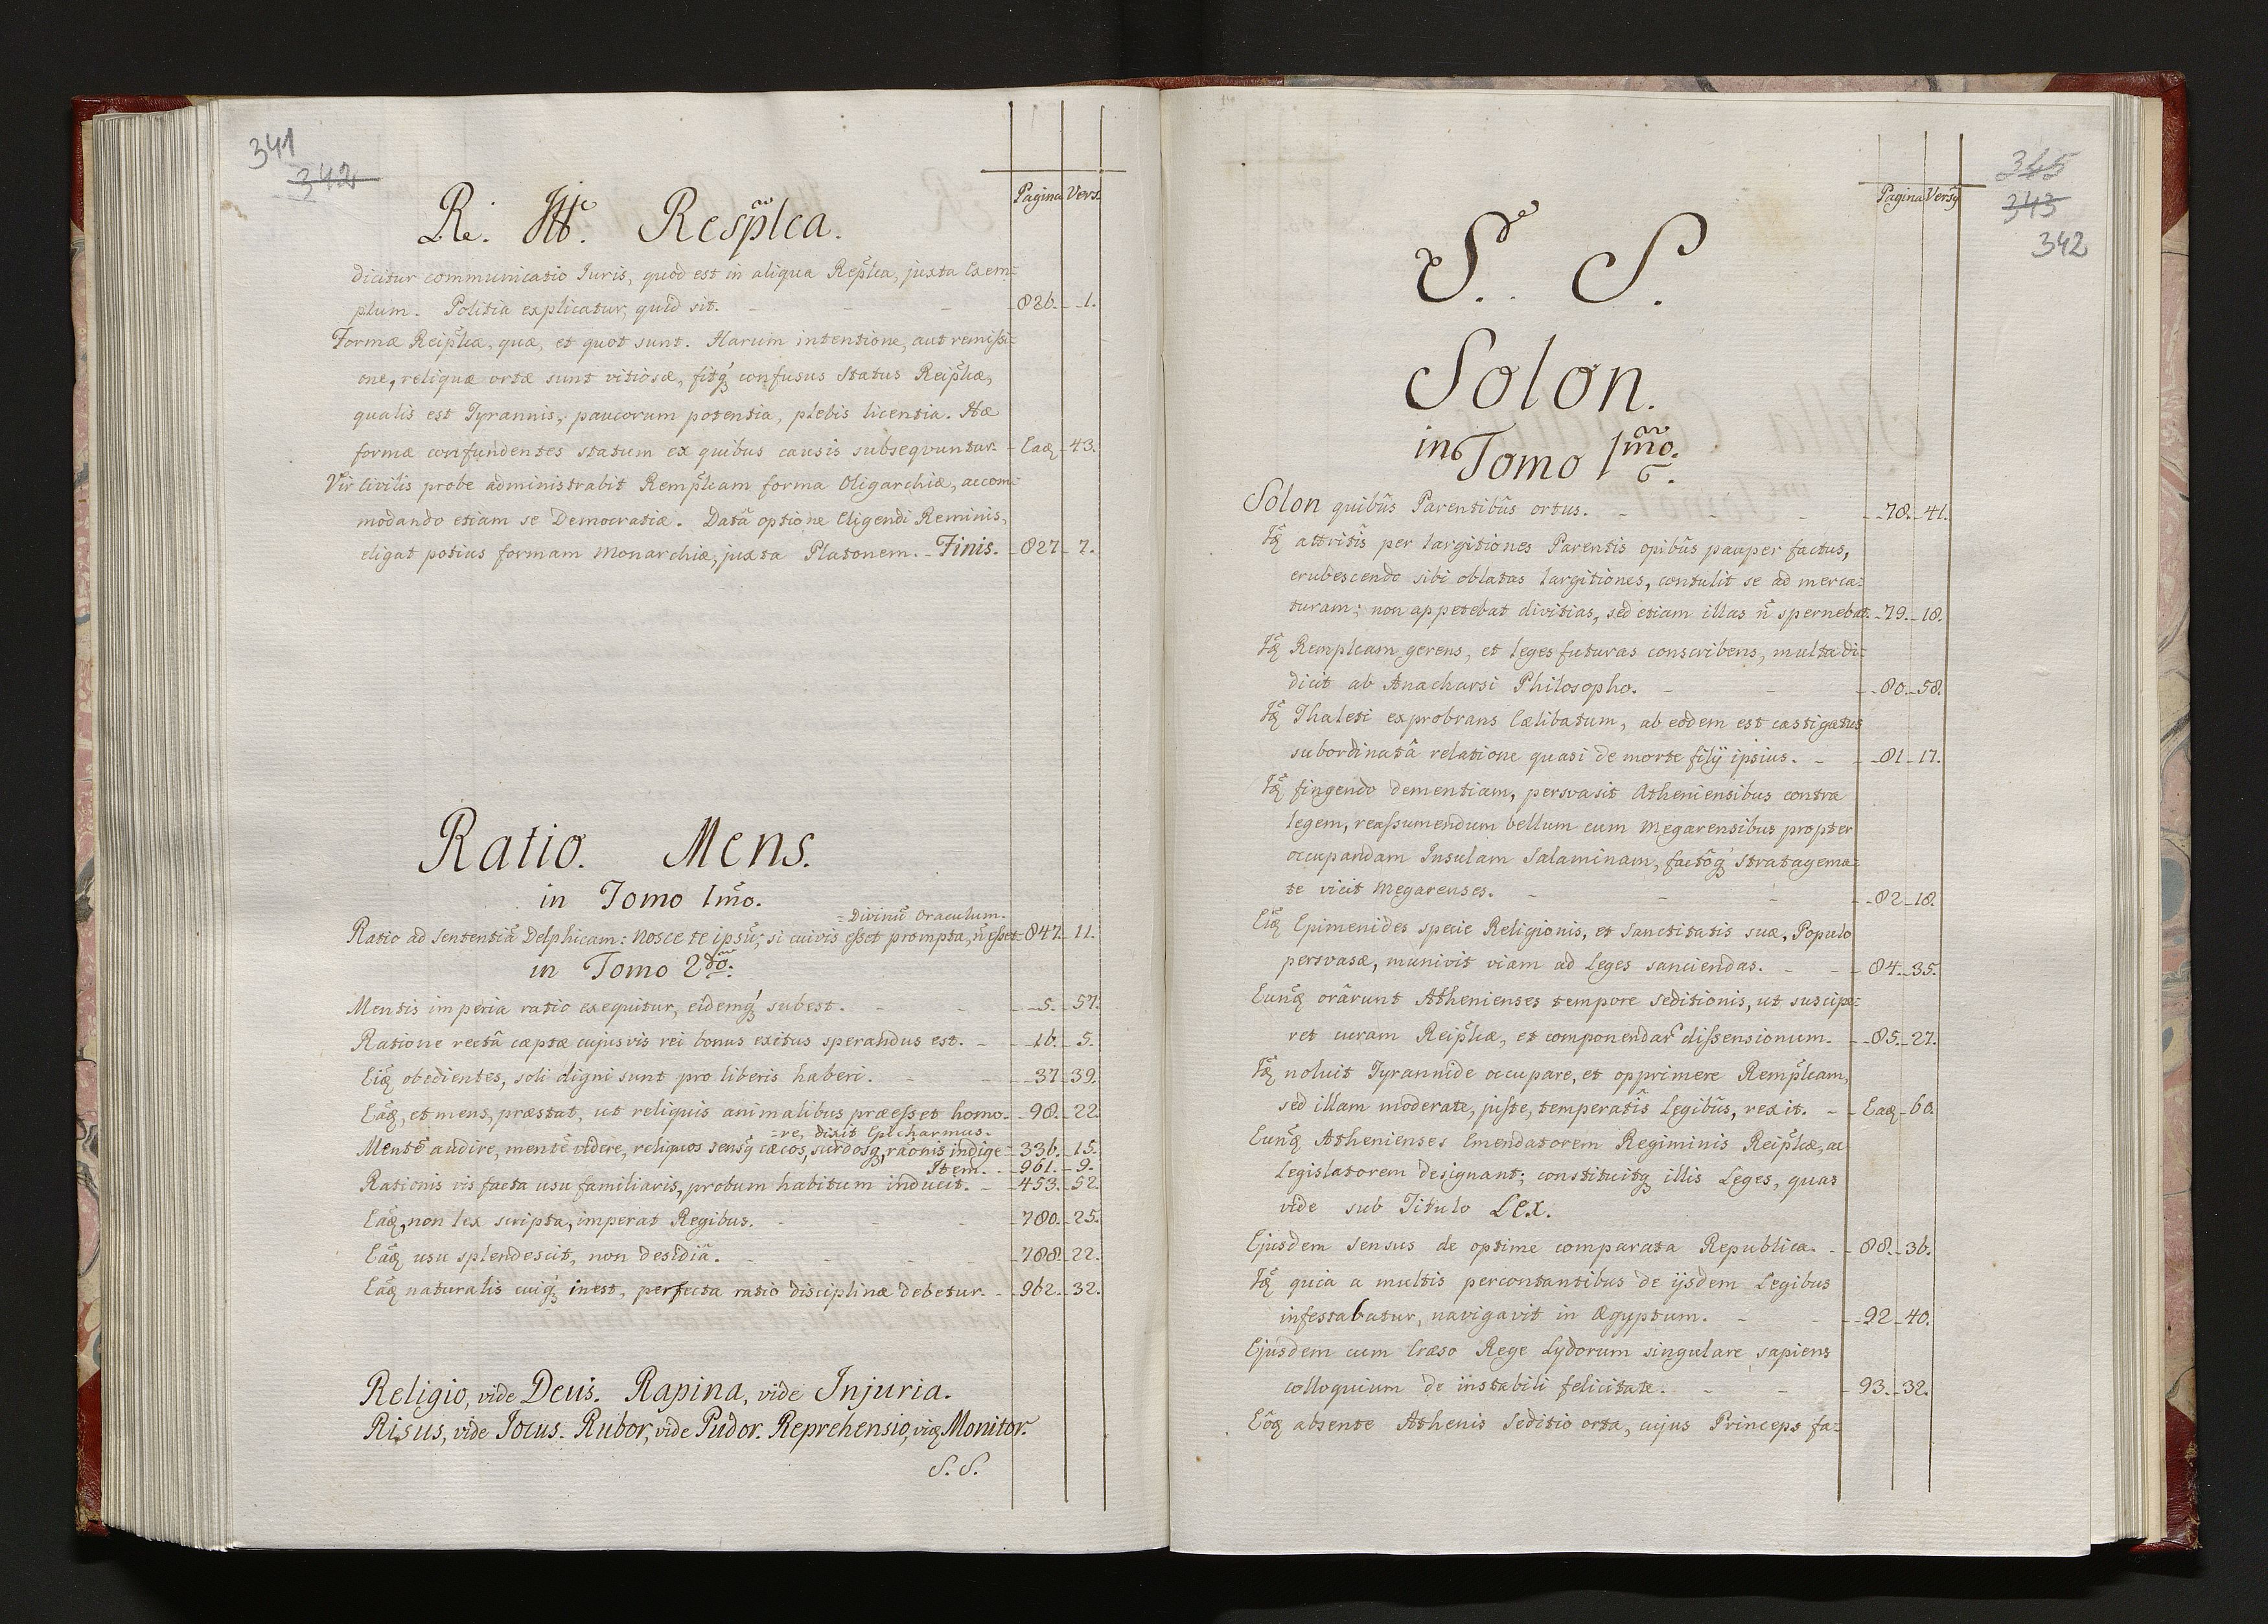 341
342
Pagina Vers.
Re. Resp̃lca.
dicitur communicatio Iuris, quod est in aliqua Rep̃lca, juxta Exem=
plum. Politia explicatur, quid sit. - 826. - 1.
Formæ Reip̃lcæ, quæ, et quot sunt. Harum intentione, aut remissi=
one, reliquæ ortæ sunt vitiosæ, fitq́ confusus status Reip̃lcæ,
qualis est Tyrannis, paucorum potentia, plebis licentia. Hæ
formæ confundentes statum ex quibus causis subseqvuntur. - Eaq̃ - 43.
Vir Civilis probe administrabit Remp̃lcam forma Oligarchiæ, accom=
modando etiam se Democratiæ. Datâ optione Eligendi Reminis,
eligat potius formam Monarchiæ, juxta Platonem. - Finis. - 827 - 7.
Ratio. Mens.
in Tomo 1m̃o.
= Divinũ Oraculum.
Ratio ad Sententiã Delphicam: Nosce te ipsũ; si cuivis esset prompta, ñ esset - 847 - 11.
in Tomo 2do.
Mentis imperia ratio exequitur, eidemq́ subest. - 5. - 57.
Ratione rectâ cæptæ cujusvis rei bonus exitus sperandus est. - 16. - 5.
Eiq̃ obedientes, soli digni sunt pro liberis haberi. - 37 - 39.
Eaq̃, et mens, præstat, ut reliquis animalibus præesset homo. - 98. - 22.
= re, dixit Epicharmus.
Mentẽ audire, mentẽ videre, reliquos sensq̃ cæcos, surdosq̃, raõnis indige - 336. - 15.
Item. - 961. - 9.
Rationis vis facta usu familiaris, probum habitum inducit. - 453. - 52.
Eaq̃, non lex scripta, imperat Regibus. - 780. - 25.
Eaq̃ usu splendescit, non desidiâ. - 788. - 22.
Eaq̃ naturalis cuiq́ inest, perfecta ratio disciplinæ debetur. - 962. - 32.
Religio, vide Deus. Rapina, vide Injuria.
Risus, vide Jocus. Rubor, vide Pudor. Reprehensio, viq̃ Monitor.
S. S.
345
343
342
Pagina Versq̃
S. S.
Solon.
in Tomo 1m̃o.
Solon quibûs Parentibûs ortus. - 78. - 41.
Iq̃ attritîs per largitiones Parentis opibûs pauper factus,
erubescendo sibi oblatas largitiones, contulit se ad merca=
turam; non appetebat divitias, sed etiam illas ñ spernebat. - 79. - 18.
Iq̃ Remplcam gerens, et leges futuras conscribens, multa di=
dicit ab Anacharsi Philosopho. - 80. - 58.
Iq̃ Thaleti exprobrans Cælibatum, ab eodem est castigatus
subordinatâ relatione quasi de morte filÿ ipsius. - 81 - 17.
Iq̃ fingendo dementiam, persvasit Atheniensibus contra
legem, reassumendum bellum cum Megarensibus propter
occupandam Insulam Salaminam, factôq́ stratagema=
te vicit Megarenses. - 82 - 18.
Eiq̃ Epimenides specie Religionis, et Sanctitatis suæ, Populo
persvasæ, munivit viam ad Leges sanciendas. - 84. - 35.
Eunq̃ orârunt Athenienses tempore seditionis, ut suscipe=
ret curam Reip̃lcæ, et componendar̃ dissensionum. - 85. - 27.
Iq̃ noluit Tyrannide occupare, et opprimere Remp̃lcam,
sed illam moderate, juste, temperatîs legibûs, rexit. - Eaq̃ - 60.
Eunq̃ Athenienses Emendatorem Regiminis Reip̃lcæ, ac
Legislatorem designant; constituitq̃ illis Leges, quas
vide sub Titulo Lex.
Ejusdem sensus de optime comparata Republica. - 88. - 36.
Iq̃ quia a multis percontantibus de ijsdem Legibus
infestabatur, navigavit in Ægyptum. - 92 - 40.
Ejusdem cum Cræso Rege Lydorum singulare sapiens
colloquium de instabili felicitate. - 93. - 32.
Eôq̃ absente Athenis Seditio orta, cujus Princeps fa=